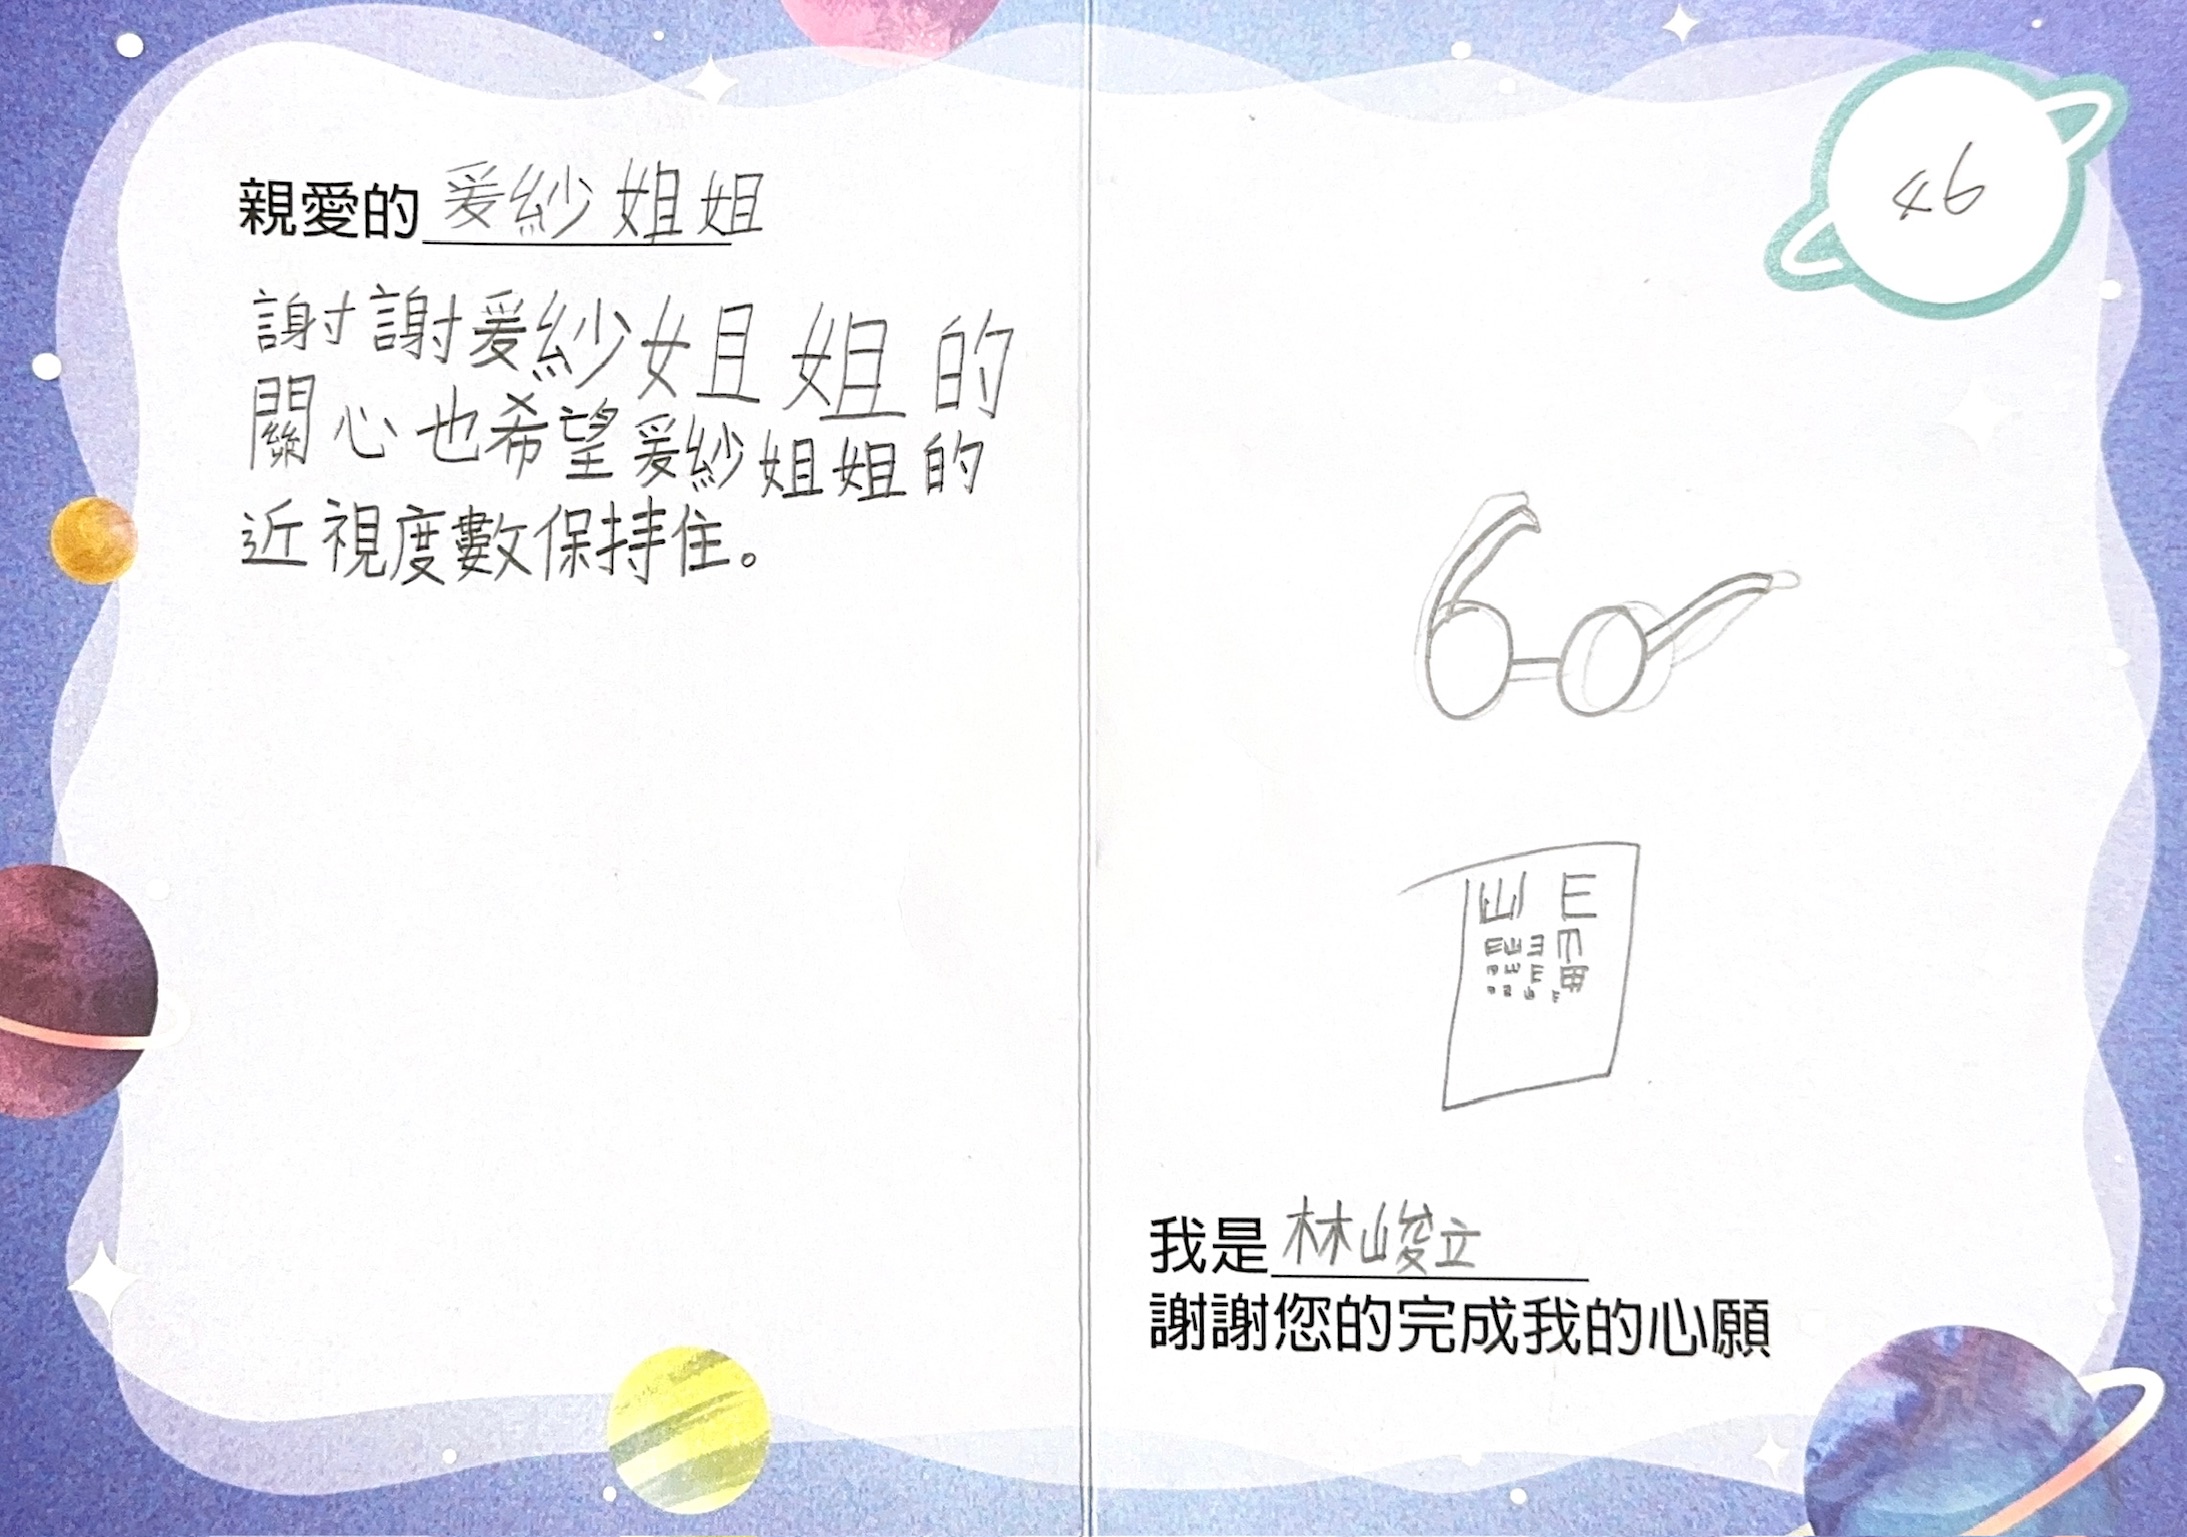 親愛的 爰紗姐姐
謝謝爰紗姐姐的
關心也希望爰紗姐姐的
近視度數保持住。
46
E
我是 林峻立
謝謝您的完成我的心願